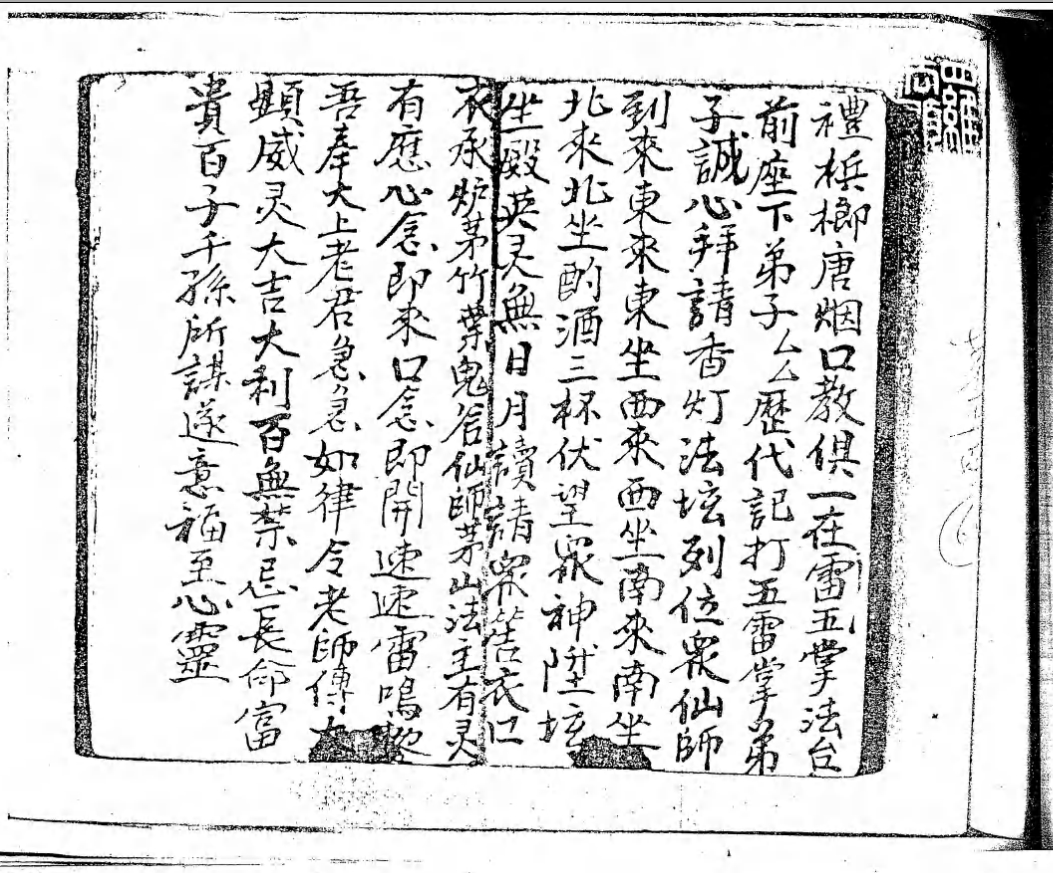 禮梹榔唐烟口教俱一在雷五掌法台
前座下弟子厶厶歷代記打五雷掌弟
子誠心拜請香灯法坛列位衆仙師
到來東來東坐西來西坐南來南坐
北來北坐酌酒三杯伏望衆神陞坛
坐殿英灵無日月讀請衆筶衣口
衣承炉茅竹葉鬼谷仙師茅山法主有灵
有應心念即來口念即開速速雷鳴
吾奉大上老君急急如律令老師傅
顕威灵大吉大利百無禁忌長命富
貴百子千孫所謀遂意福至心靈